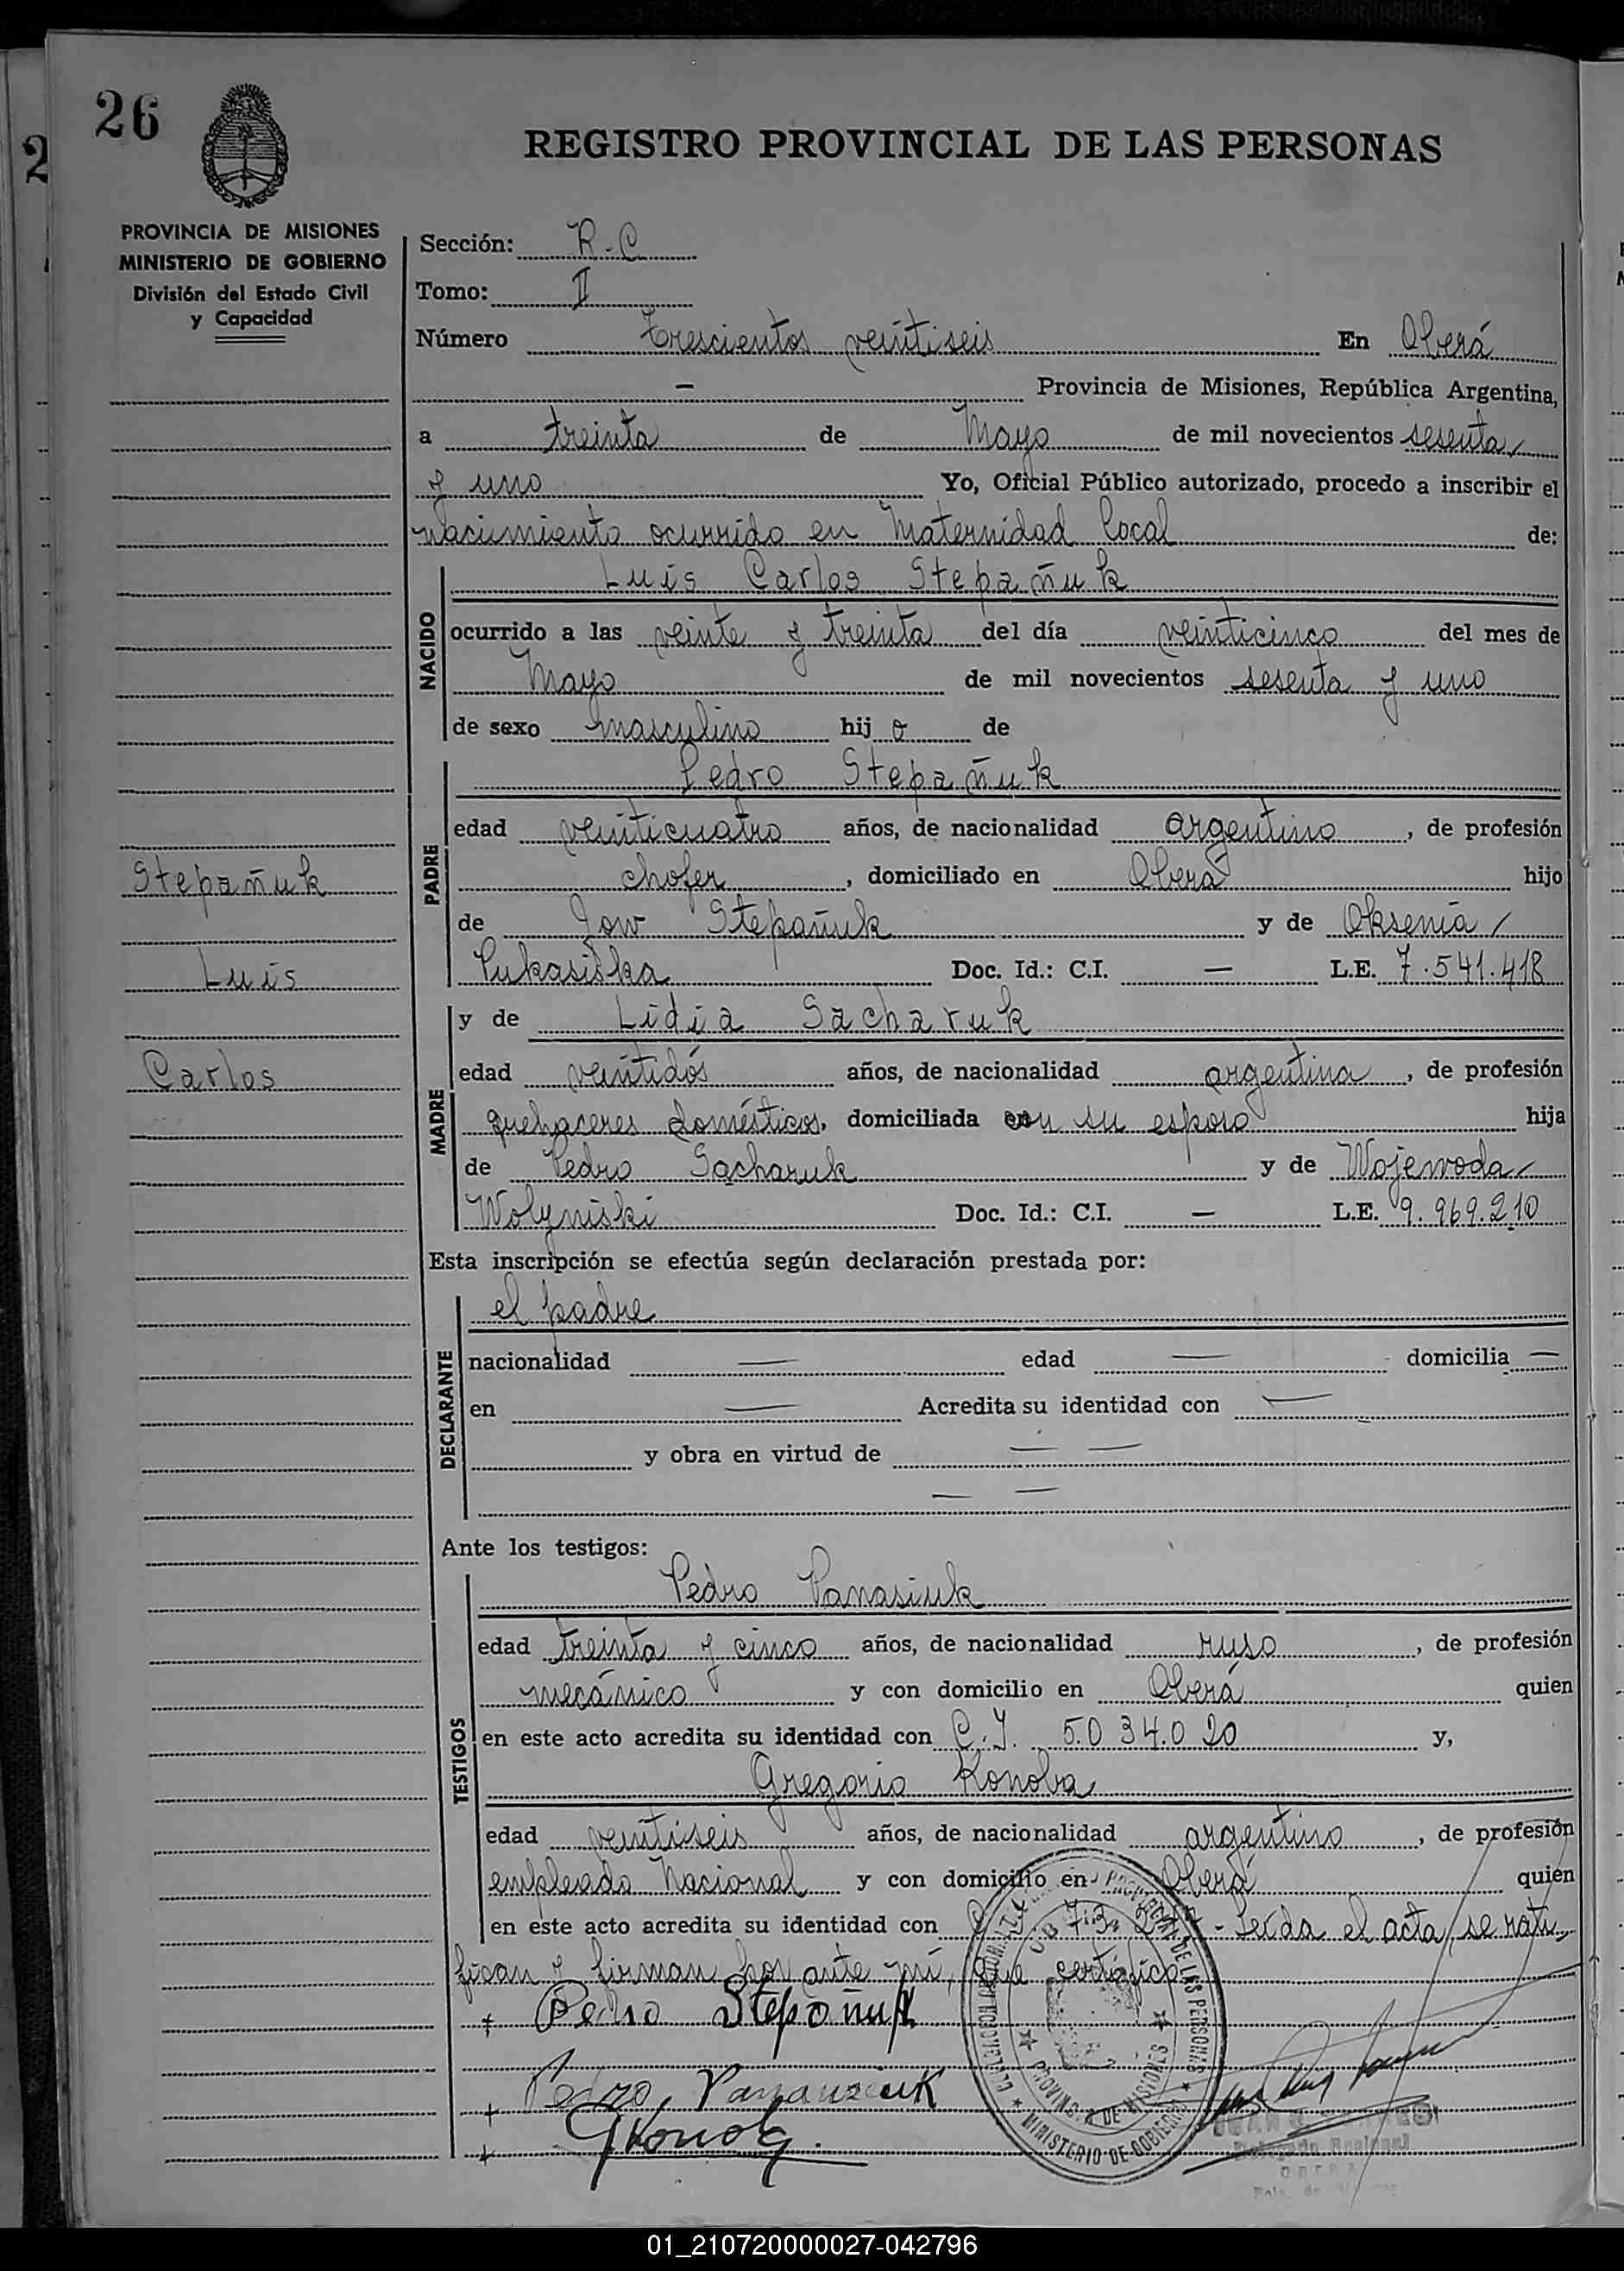 26
REGISTRO PROVINCIAL DE LAS PERSONAS
PROVINCIA DE MISIONES
MINISTERIO DE GOBIERNO
División del Estado Civil
y Capacidad
Sección: R-C
Tomo: II
Número Trescientos veintiseis En Oberá
— Provincia de Misiones, República Argentina,
a treinta de Mayo de mil novecientos sesenta/
y uno Yo, Oficial Público autorizado, procedo a inscribir el
nacimiento ocurrido en Maternidad local de:
NACIDO
Luis Carlos Stepañuk
ocurrido a las veinte y treinta del día veinticinco del mes de
Mayo de mil novecientos sesenta y uno
de sexo masculino hij o de
PADRE
Pedro Stepañuk
edad veinticuatro años, de nacionalidad argentino, de profesión
Stepañuk
chofer, domiciliado en Oberá hijo
de Jow Stepañuk y de Oksenia/
Luis
Lukasiska Doc. Id.: C.I. — L.E. 7.541.418
MADRE
y de Lidia Sacharuk
Carlos
edad veintidós años, de nacionalidad argentina, de profesión
quehaceres domésticos, domiciliada con su esposo hija
de Pedro Sacharuk y de Wojewoda/
Wolyniski Doc. Id.: C.I. — L.E. 9.969.210
Esta inscripción se efectúa según declaración prestada por:
DECLARANTE
el padre
nacionalidad — edad — domicilia —
en — Acredita su identidad con —
y obra en virtud de — —
— —
Ante los testigos:
TESTIGOS
Pedro Panasiuk
edad treinta y cinco años, de nacionalidad ruso, de profesión
mecánico y con domicilio en Oberá quien
en este acto acredita su identidad con C.I. 5.034.020 y,
Gregorio Konoba
edad veintiseis años, de nacionalidad argentino, de profesión
empleado Nacional y con domicilio en Oberá quien
en este acto acredita su identidad con - Leída el acta, se rati
fican y firman por ante mí, que certifico
Pedro Stepañuk
Pedro Panasiuk
GKonoba.
PROVINCIA DE MISIONES
MINISTERIO DE GOBIERNO
01_210720000027-042796